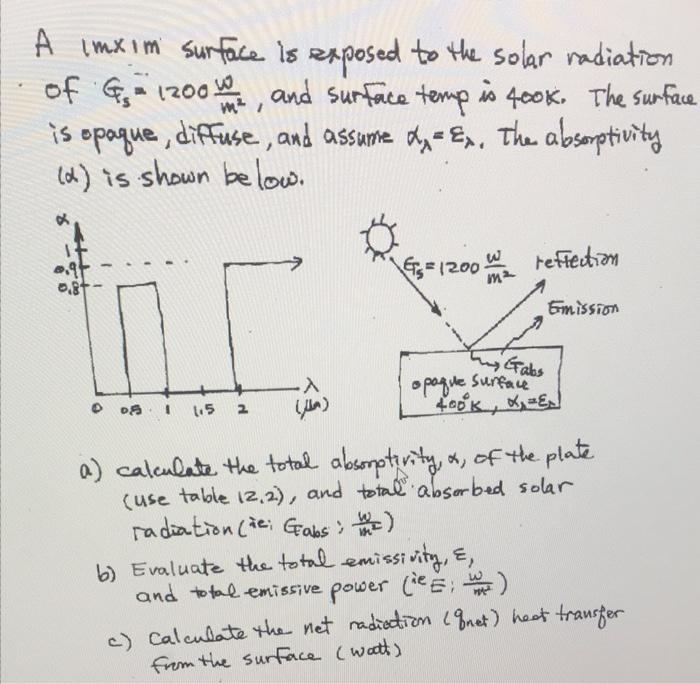 A 1mx1m surface is exposed to the solar radiation
of Gs = 1200 W/m², and surface temp is 400K. The surface
is opaque, diffuse, and assume αλ = ελ. The absorptivity
(α) is shown below.
α
1
0.9
0.8
0 0.5 1 1.5 2 λ (μm)
Gs = 1200 W/m² reflection
Emission
Gabs
opaque surface
400°K, αλ=ελ
a) calculate the total absorptivity, α, of the plate
(use table 12.2), and total absorbed solar
radiation (ie; Gabs; W/m²)
b) Evaluate the total emissivity, ε,
and total emissive power (ie E; W/m²)
c) Calculate the net radiation (qnet) heat transfer
from the surface (watt)